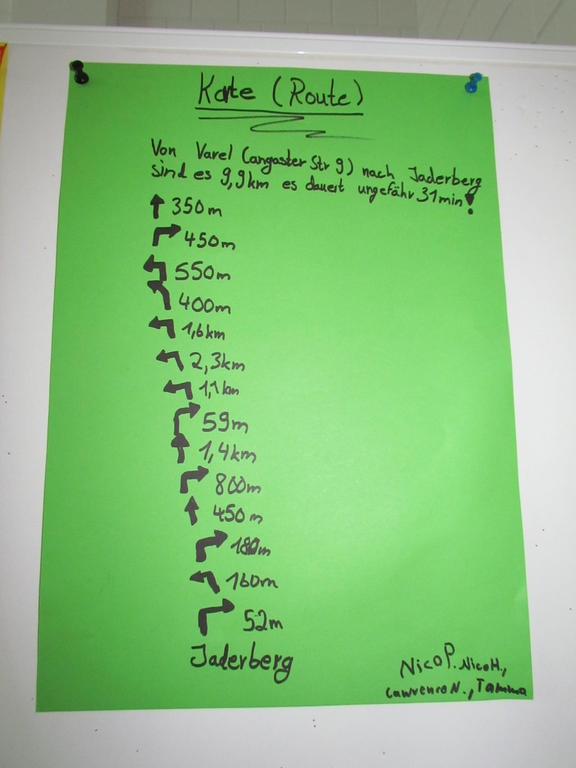 Karte (Route)
Von Varel (Langaster Str 9) nach Jaderberg
sind es 9,9km es dauert ungefähr 31min!
350m
450m
550m
400m
1,6km
2,3km
1,1km
59m
1,4km
800m
450m
180m
160m
52m
Jaderberg
Nico P. Nico H.,
Lawrence N., Tamma